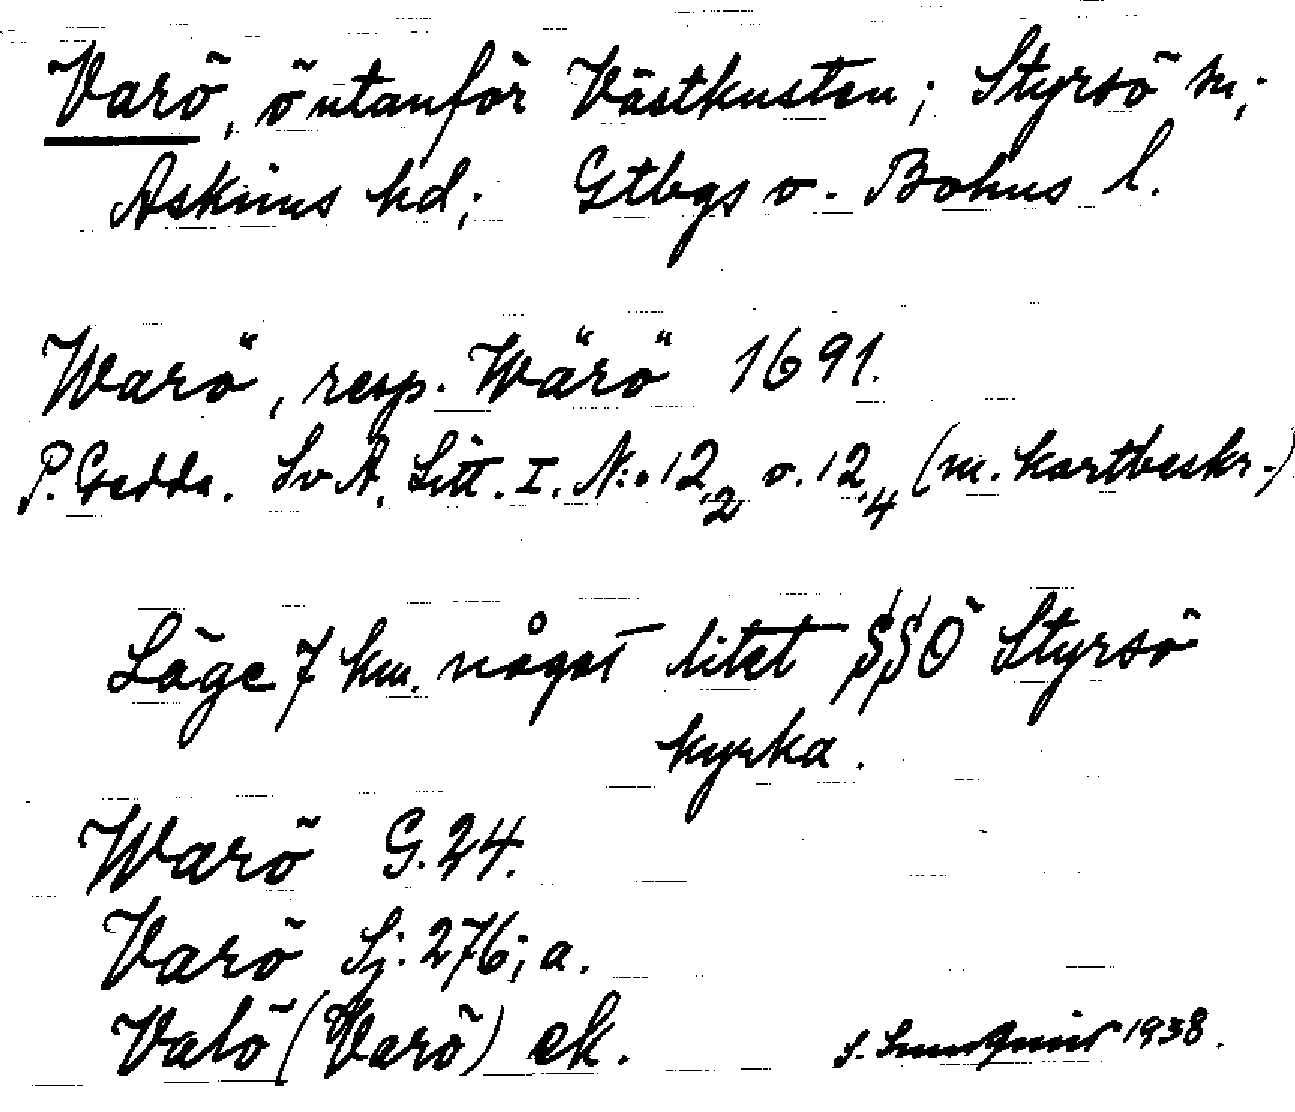 Varö, ö utanför Västkusten; Styrsö sn;
Askims hd; Gtbgs o. Bohus l.
Warö, resp. Wärö 1691.
P. Gedda. SvA. Litt. I. N:o 12,2 o. 12,4 (m. kartbeskr.)
Läge 7 km. något litet SSÖ Styrsö
kyrka.
Warö G. 24.
Varö Sj. 276; a.
Valö (Varö) ek.
1938.